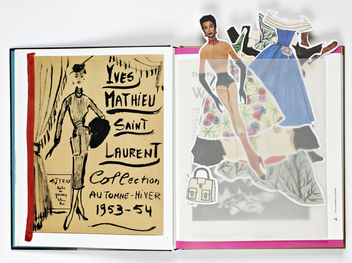 YVES
MATHIEU
SAINT
LAURENT
Collection
AUTOMNE-HIVER
1953-54